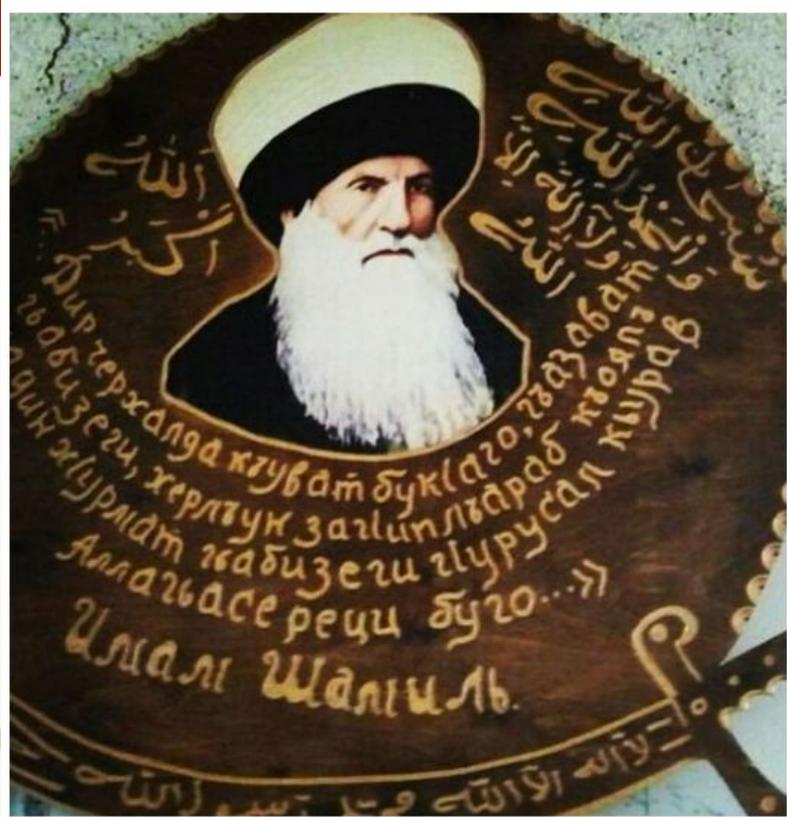 الله
أكبر
سبحان الله
والحمد لله
ولا إله إلا
الله
«Дир черхалда къуват букӀаго, гъазават
гьабизеги, херлъун загӀиплъараб къоялъ
дин хӀурмат гьабизеги гӀурусал кьурав
Аллагьасе рецц буго...»
Имам Шамиль.
لا إله إلا الله